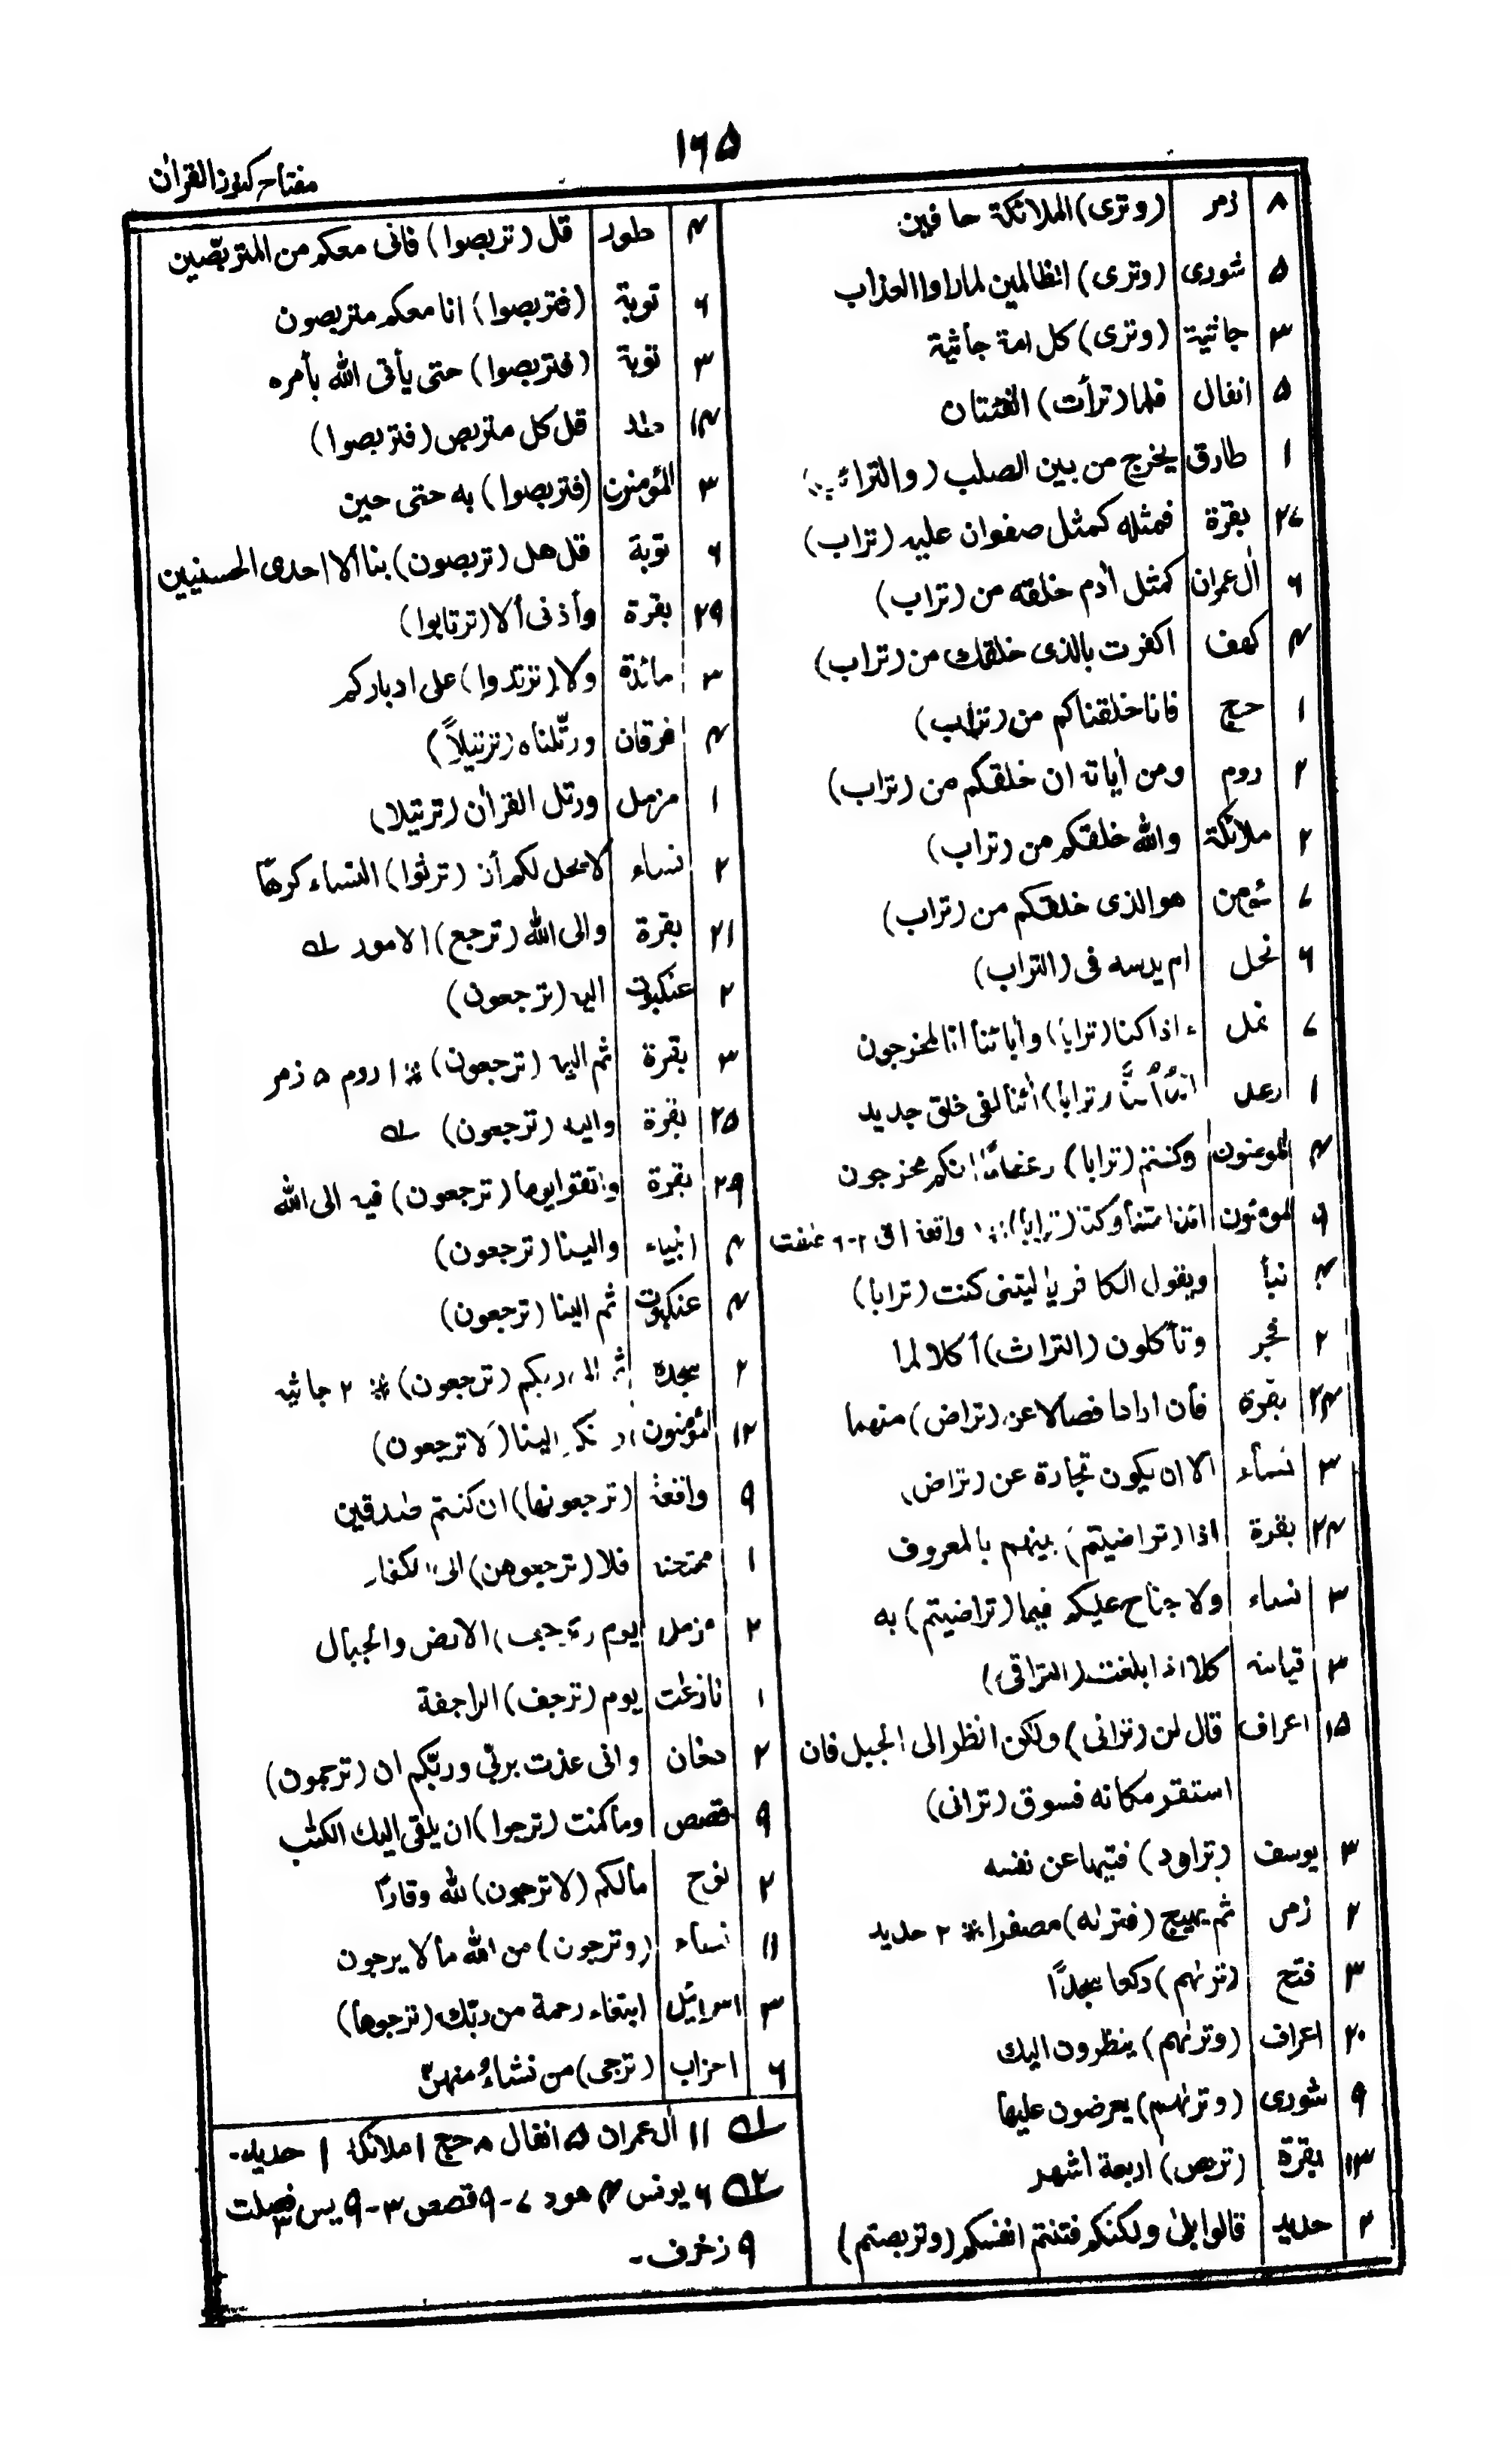 ۱۶۵
مفتاح کنوز القرآن
۸ زمر (وتری) الملائکة حافین
۵ شوری (وتری) الظالمین لما راوا العذاب
۳ جاثیة (وتری) کل امة جاثیة
۵ انفال فلما (ترأت) الفئتان
۱ طارق یخرج من بین الصلب (والترائب)
بقرة فمثله کمثل صفوان علیه (تراب)
۶ آل عمران کمثل آدم خلقه من (تراب)
۴ کهف اکفرت بالذی خلقک من (تراب)
۱ حج فانا خلقناکم من (تراب)
۲ روم ومن أیاته ان خلقکم من (تراب)
۲ ملائکة والله خلقکم من (تراب)
۷ هو الذی خلقکم من (تراب)
۶ نحل ام یدسه فی (التراب)
نمل ء اذا کنا (ترابا) وأبائنا انا لمخرجون
۱ رعد (ترابا) أئنا لفی خلق جدید
۳ المومنون وکنتم (ترابا) وعظاماً انکم مخرجون
المومنون ائذا متنا وکنا (ترابا) واقعة
نبأ ویقول الکافر یا لیتنی کنت (ترابا)
۲ فجر وتأکلون (التراث) أکلا لما
بقرة فأن ارادا فصالا عن (تراض) منهما
۳ نساء الا ان یکون تجارة عن (تراض)
بقرة اذا (تراضیتم) بینهم بالمعروف
۳ نساء ولا جناح علیکم فیما (تراضیتم) به
قیامة کلا اذا بلغت (التراقی)
۱۵ اعراف قال لن (ترانی) ولکن انظر الی الجبل فان
استقر مکانه فسوف (ترانی)
۳ یوسف (تراود) فتیها عن نفسه
۲ زمر ثم یهیج (فتراه) مصفرا ※ ۲ حدید
فتح (ترٰىهم) رکعا سجداً
۲۰ اعراف (وترٰىهم) ینظرون الیک
شوری (وترٰىهم) یعرضون علیها
بقرة (تربص) اربعة اشهر
۲ حدید قالوا بلیٰ ولکنکم فتنتم انفسکم (وتربصتم)
۴ طور قل (تربصوا) فانی معکم من المتربّصین
۶ توبة (فتربصوا) انا معکم متربصون
۳ توبة (فتربصوا) حتی یأتی الله بأمره
قل کل متربص (فتربصوا)
۳ المؤمنون (فتربصوا) به حتی حین
۶ توبة قل هل (تربصون) بنا ألا احدی الحسنیین
۲۹ بقرة وأدنی ألا (ترتابوا)
۳ مائدة ولا (ترتدوا) علی ادبارکم
۴ فرقان ورتّلناه (ترتیلاً)
۱ مزمل ورتل القرأن (ترتیلا)
۲ نساء لا یحل لکم أن (ترثوا) النساء کرهًا
۲۱ بقرة والی الله (ترجع) الامور ؎۱
۲ عنکبوت الیه (ترجعون)
۳ بقرة ثم الیه (ترجعون) ※ ۱ روم ۵ زمر
۲۵ بقرة والیه (ترجعون) ؎۲
بقرة واتقوا یوما (ترجعون) فیه الی الله
۳ انبیاء والینا (ترجعون)
عنکبوت ثم الینا (ترجعون)
سجدة ربکم (ترجعون) ※ ۲ جاثیه
المؤمنون الینا (لا ترجعون)
واقعة (ترجعونها) ان کنتم صٰدقین
۱ ممتحنه فلا (ترجعوهن) الی الکفار
مزمل یوم (ترجف) الارض والجبال
۱ نازعٰت یوم (ترجف) الراجفة
۲ دخان وانی عذت بربّی وربّکم ان (ترجمون)
۹ قصص وما کنت (ترجوا) ان یلقی الیک الکتٰب
۲ نوح مالکم (لا ترجون) لله وقارًا
نساء (وترجون) من الله ما لا یرجون
۳ اسرائیل ابتغاء رحمة من ربّک (ترجوها)
۶ احزاب (ترجی) من تشاءُ منهنّ
؎۱ ۱۱ آل عمران ۵ انفال حج ۱ ملائکة ۱ حدید۔
؎۲ ۶ یونس هود قصص ۳-۹ یس ۳ فصلت
۹ زخرف۔